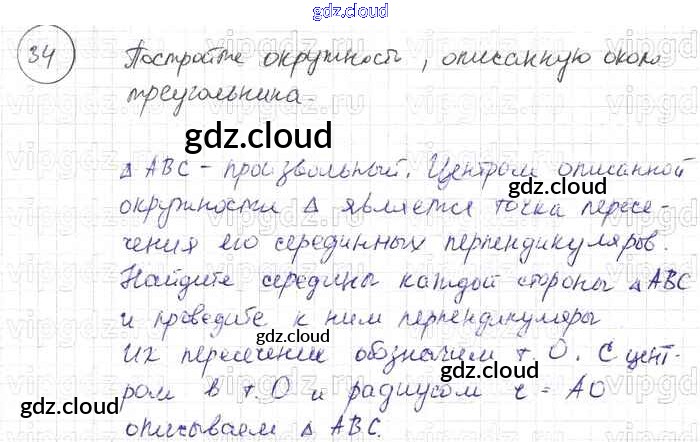 gdz.cloud
34
Постройте окружность, описанную около
треугольника.
gdz.cloud
△ ABC - произвольный. Центром описанной
gdz.cloud
окружности △ является точка пересе-
чения его серединных перпендикуляров.
gdz.cloud
Найдите середины каждой стороны △ ABC
и проведите к ним перпендикуляры
gdz.cloud
Их пересечение обозначим т. O. С цент-
gdz.cloud
ром в т. O и радиусом r = AO
gdz.cloud
описываем △ ABC.
gdz.cloud